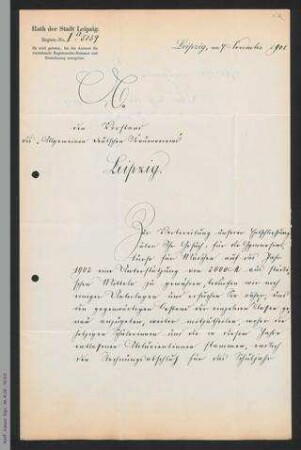 Rath der Stadt Leipzig.
Registr.-No.
Es wird gebeten, bei der Antwort die
vorstehende Registranden-Nummer und
Bezeichnung anzugeben.
Leipzig, am 7. November 1901
An
den Vorstand
des Allgemeinen deutschen Frauenvereins
Leipzig.
Zur Vorbereitung unserer Entschließung
über Ihr Gesuch, für die Gymnasial-
kurse für Mädchen auf das Jahr
1902 eine Unterstützung von 2000 M aus städti-
schen Mitteln zu gewähren, bedürfen wir noch
einiger Unterlagen und ersuchen Sie daher, uns
den gegenwärtigen Bestand der einzelnen Klassen ge-
nau anzugeben, weiter mitzutheilen, woher die
jetzigen Schülerinnen und die in diesem Jahre
entlassenen Abiturientinnen stammen, endlich
den Rechnungsabschluß für das Schuljahr